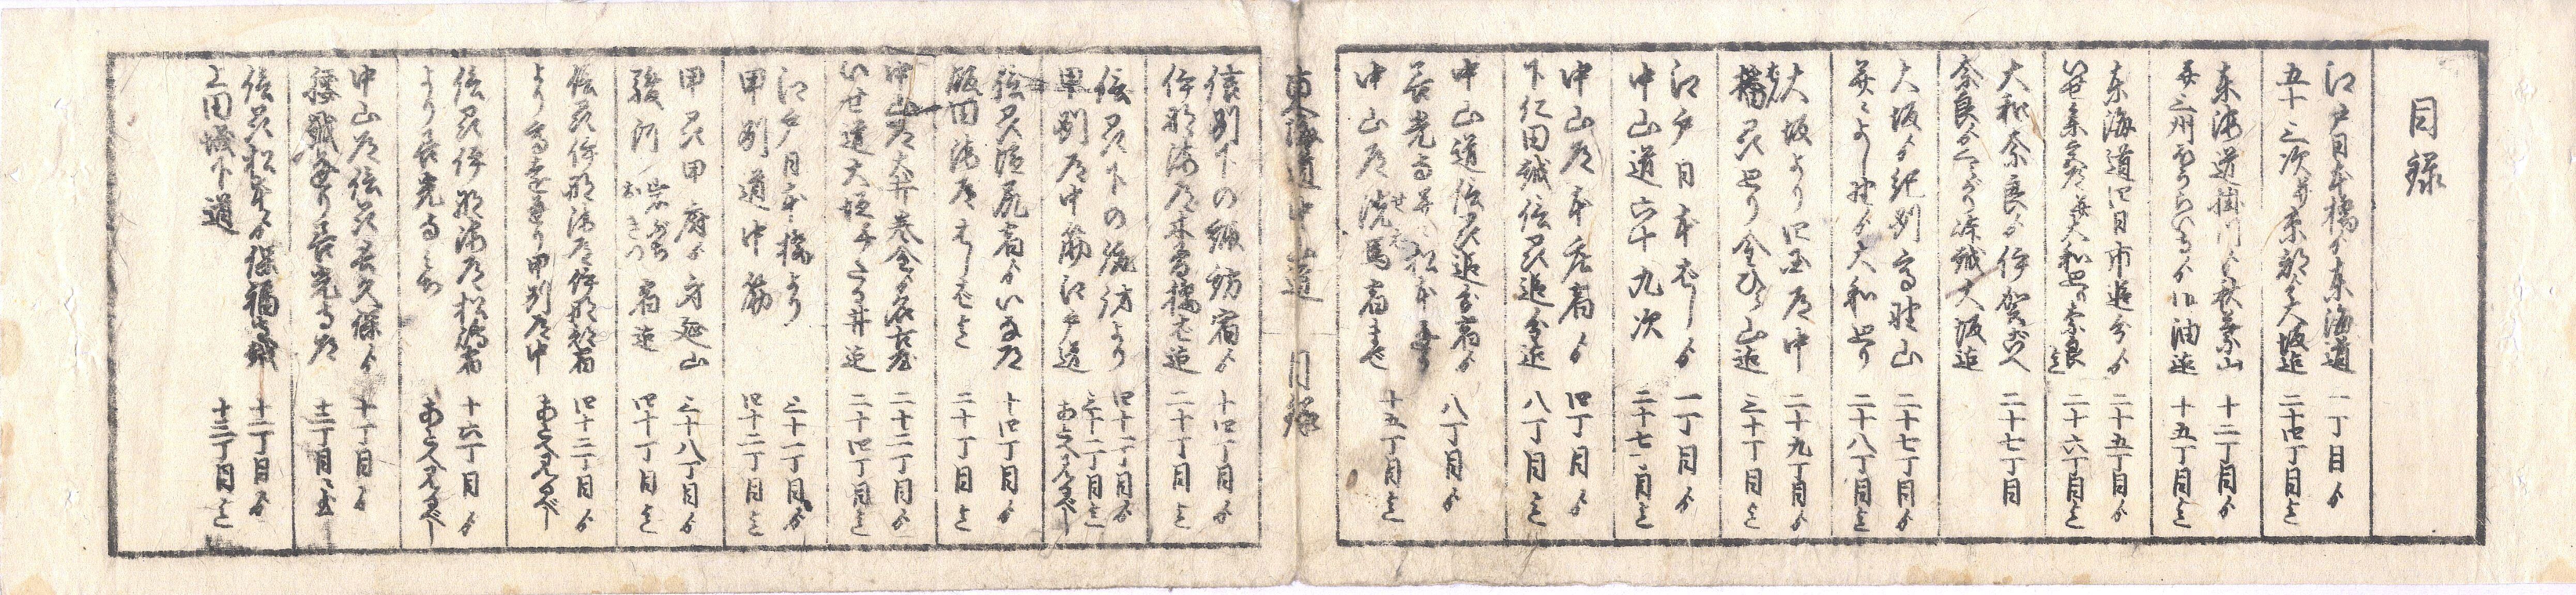 目録
江戸日本橋ゟ東海道 一丁目ゟ
五十三次并京都ゟ大坂迄 二十四丁目迄
東海道掛川ゟ秋葉山 十二丁目ゟ
并三州 油迄 十五丁目迄
東海道四日市追分ゟ 二十五丁目ゟ
いせ参宮道并大和廻り奈良迄 二十六丁目迄
大和奈良ゟ伊賀越 二十七丁目
奈良ゟくらがり峠越大坂迄
大坂ゟ紀州高野山 二十七丁目ゟ
并によし野ゟ大和廻り 二十八丁目迄
大坂より四国道中 二十九丁目ゟ
播州廻り金ひら山迄 三十丁目迄
江戸日本ばしゟ 一丁目ゟ
中山道六十九次 二十七丁目迄
中山道本庄宿ゟ 四丁目ゟ
下仁田越信州追分迄 八丁目迄
中山道信州追分宿ゟ 八丁目ゟ
善光寺并ニ松本通り
中山道洗馬宿まで 十五丁目迄
東海道中山道 目録
信州下の諏訪宿ゟ 十四丁目ゟ
伊那海道木曽橋場迄 二十丁目迄
信州下の諏訪より 四十一丁目ゟ
甲州道中筋江戸迄 三十二丁目迄 あとへ見るべし
信州塩尻宿ゟいな道 十四丁目ゟ
飯田海道 二十丁目迄
中山道大井 名古屋 二十二丁目ゟ
いせ道大垣 たる井迄 二十四丁目迄
江戸日本橋より 三十一丁目ゟ
甲州道中筋 四十二丁目迄
甲州甲府ゟ身延山 三十八丁目ゟ
駿河 岩ぶち おきつ 宿迄 四十丁目迄
信州伊那海道伊那部宿 四十二丁目ゟ
より高遠通り甲州道中 あとへ見るべし
信州伊那海道松嶋宿 十六丁目ゟ
より善光寺みち あとへ見るべし
中山道信州長久保ゟ 十丁目ゟ
腰越通り善光寺道 十二丁目迄
信州松本ゟ保福寺越 十二丁目ゟ
上田城下道 十三丁目迄